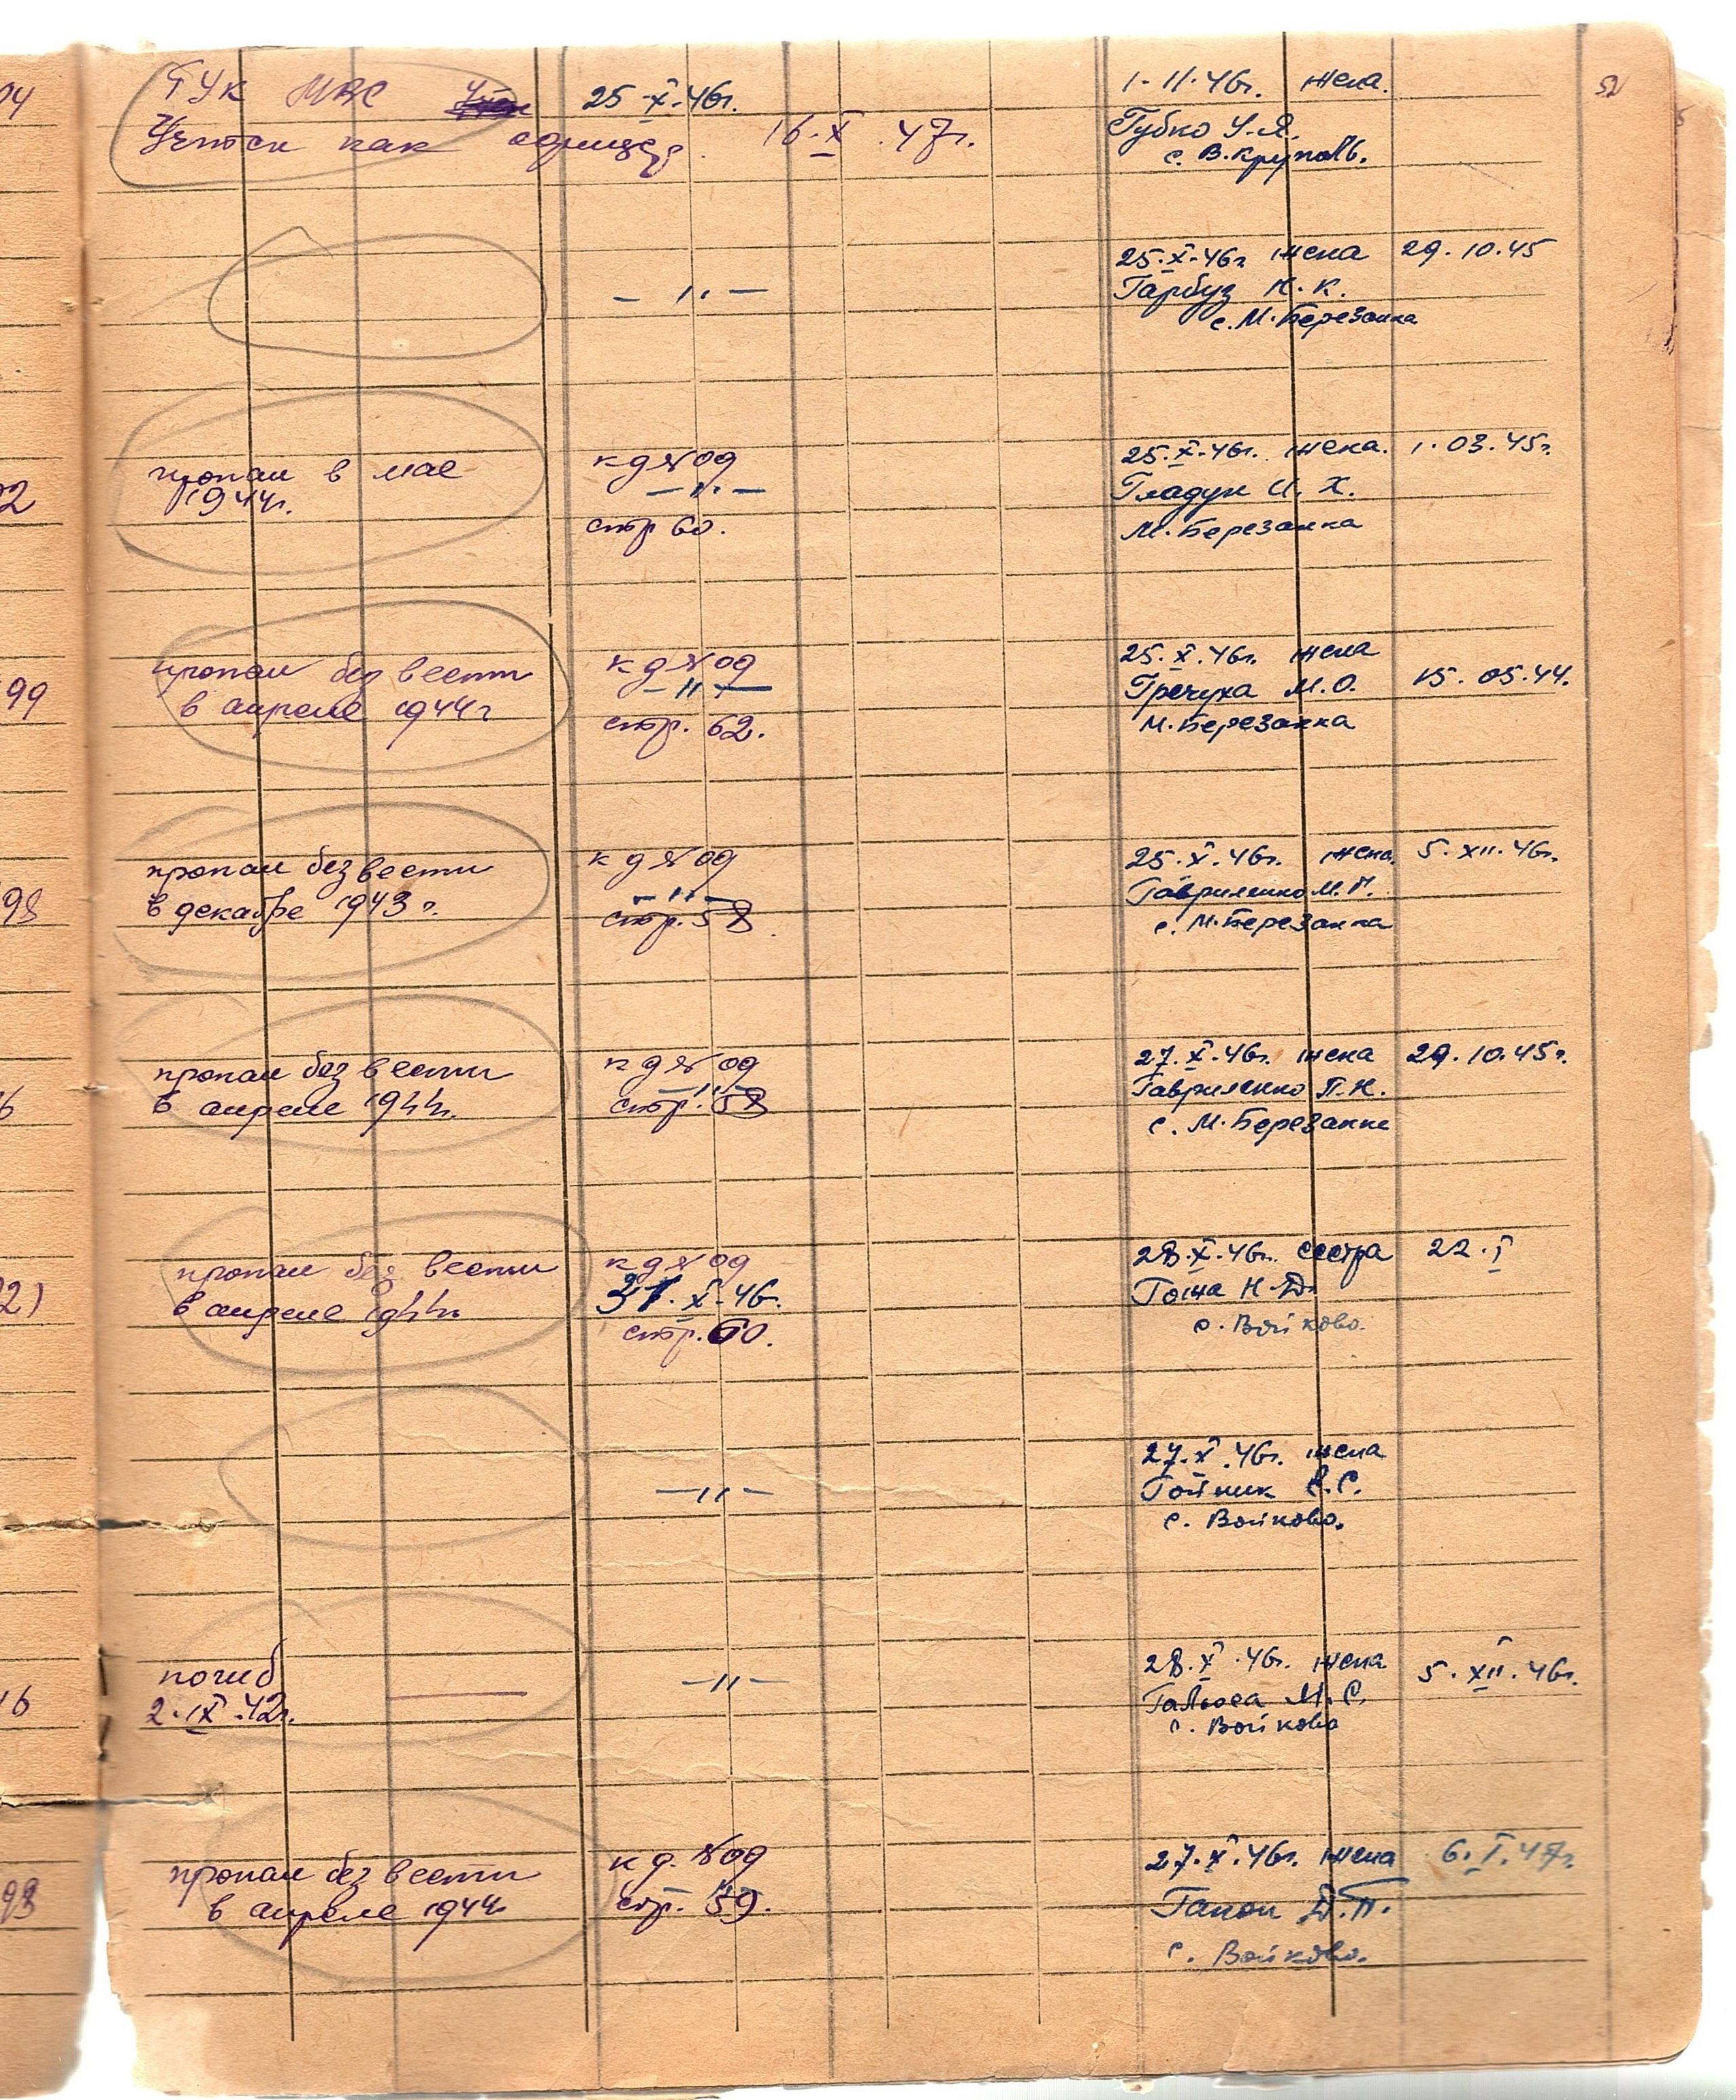 ГУК МВС 25-X-46г. 1-11-46г. жена. 52
Учтен как офицер. 16.X.47г. Губко У.Я.
с. В.Круполь.
25.X.46г. жена 29.10.45
- " - Гарбуз Н.К.
с. М.Березанка
пропал в мае к д № 09 25.X.46г. жена. 1.03.45г.
1944г. - " - Гладун И.Х.
стр 60. М.Березанка
пропал без вести к д № 09 25.X.46г. жена
в апреле 1944г - " - Гречуха М.О. 15.05.44.
стр. 62. М.Березанка
пропал без вести к д № 09 25.X.46г. жена. 5.XII.46г.
в декабре 1943г. - " - Гавриленко М.П.
стр. 58 с. М.Березанка
пропал без вести к д № 09 27.X.46г. жена 29.10.45г.
в апреле 1944г. - " - Гавриленко П.Н.
стр. 58 с. М.Березанка
пропал без вести к д № 09 28.X.46г. сестра 22.I
в апреле 1944г. 31.X.46. Гоша Н.Д.
стр. 60. с. Войково.
27.X.46г. жена
- " - Гойник Е.С.
с. Войково.
погиб - " - 28.X.46г. жена 5.XII.46г.
2.IX.42г. М.С.
с. Войково
пропал без вести к д. № 09 27.X.46г. жена 6.I.47г.
в апреле 1944г. стр. 59. Гапон Д.П.
с. Войково.